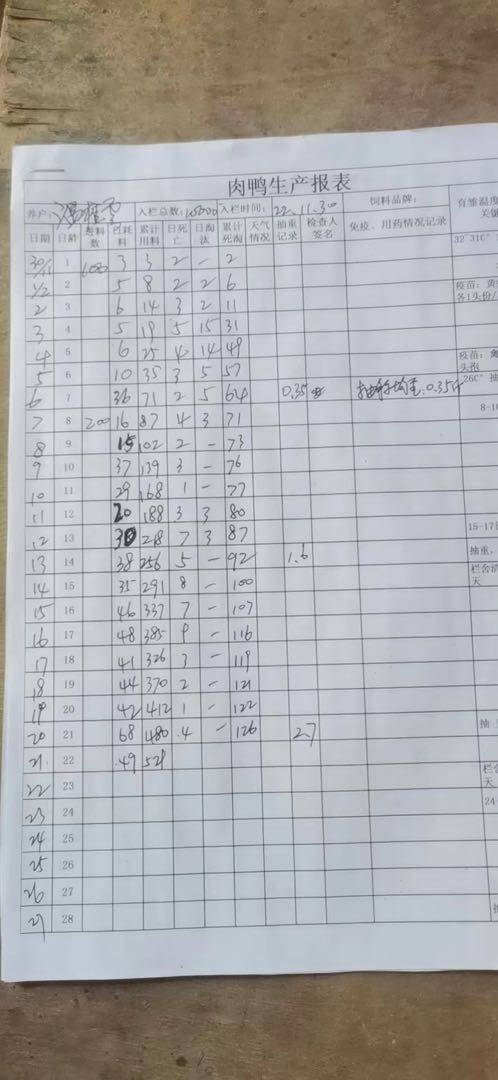 肉鸭生产报表
养户: 入栏总数: 10500 入栏时间: 22.11.30 饲料品牌: 育雏温度
日期 日龄 进料数 日耗料 累计用料 日死亡 日淘汰 累计死淘 天气情况 抽重记录 检查人签名 免疫、用药情况记录 关键
30/11 1 3 3 2 - 2 32 31C°
1/12 2 5 8 2 2 6 疫苗:黄
2 3 6 14 3 2 11 各1头份/
3 4 5 19 5 15 31
4 5 6 25 4 14 49 疫苗:禽
5 6 10 35 3 5 57 头孢
6 7 36 71 2 5 64 0.35 抽称均重:0.35斤 26C° 抽
7 8 200 16 87 4 3 71 8-10
8 9 15 102 2 - 73
9 10 37 139 3 - 76
10 11 29 168 1 - 77
11 12 20 188 3 3 80
12 13 30 218 7 3 87 15-17日
13 14 38 256 5 - 92 1.6 抽重,
14 15 35 291 8 - 100 栏舍消 天
15 16 46 337 7 - 107
16 17 48 385 9 - 116
17 18 41 326 3 - 119
18 19 44 370 2 - 121
19 20 42 412 1 - 122
20 21 68 480 4 - 126 2.7 抽
21 22 49 529
22 23 栏舍 天
23 24 24-
24 25
25 26
26 27
27 28